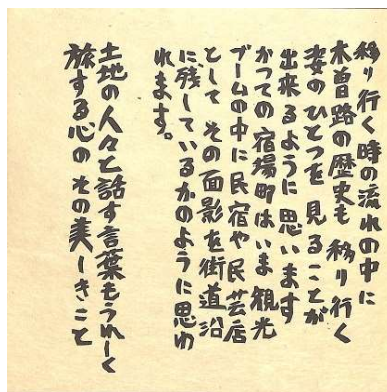 移り行く時の流れの中に
木曽路の歴史も移り行く
姿のひとつを見ることが
出来るように思います
かつての宿場町はいま観光
ブームの中に民宿や民芸店
として その面影を街道沿
に残しているかのように思わ
れます。
土地の人々と話す言葉もうれしく
旅する心の その美しきこと